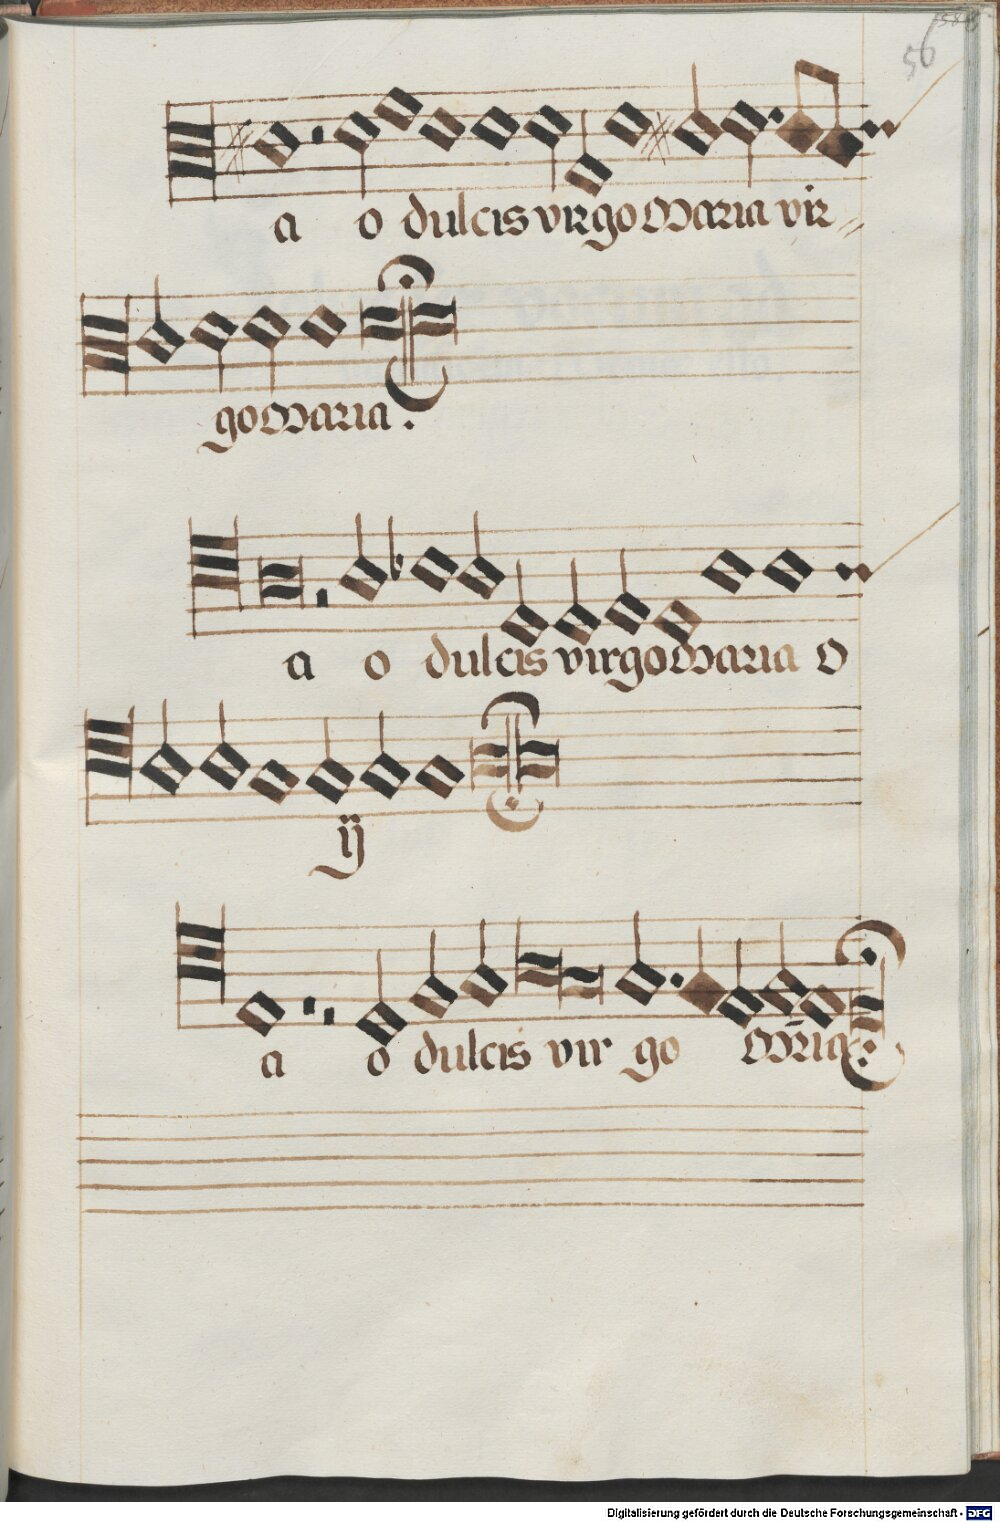 56
a o dulcis virgo Maria vir
go Maria.
a o dulcis virgo Maria O
ij
a o dulcis vir go Mr̄ia
Digitalisierung gefördert durch die Deutsche Forschungsgemeinschaft - DFG